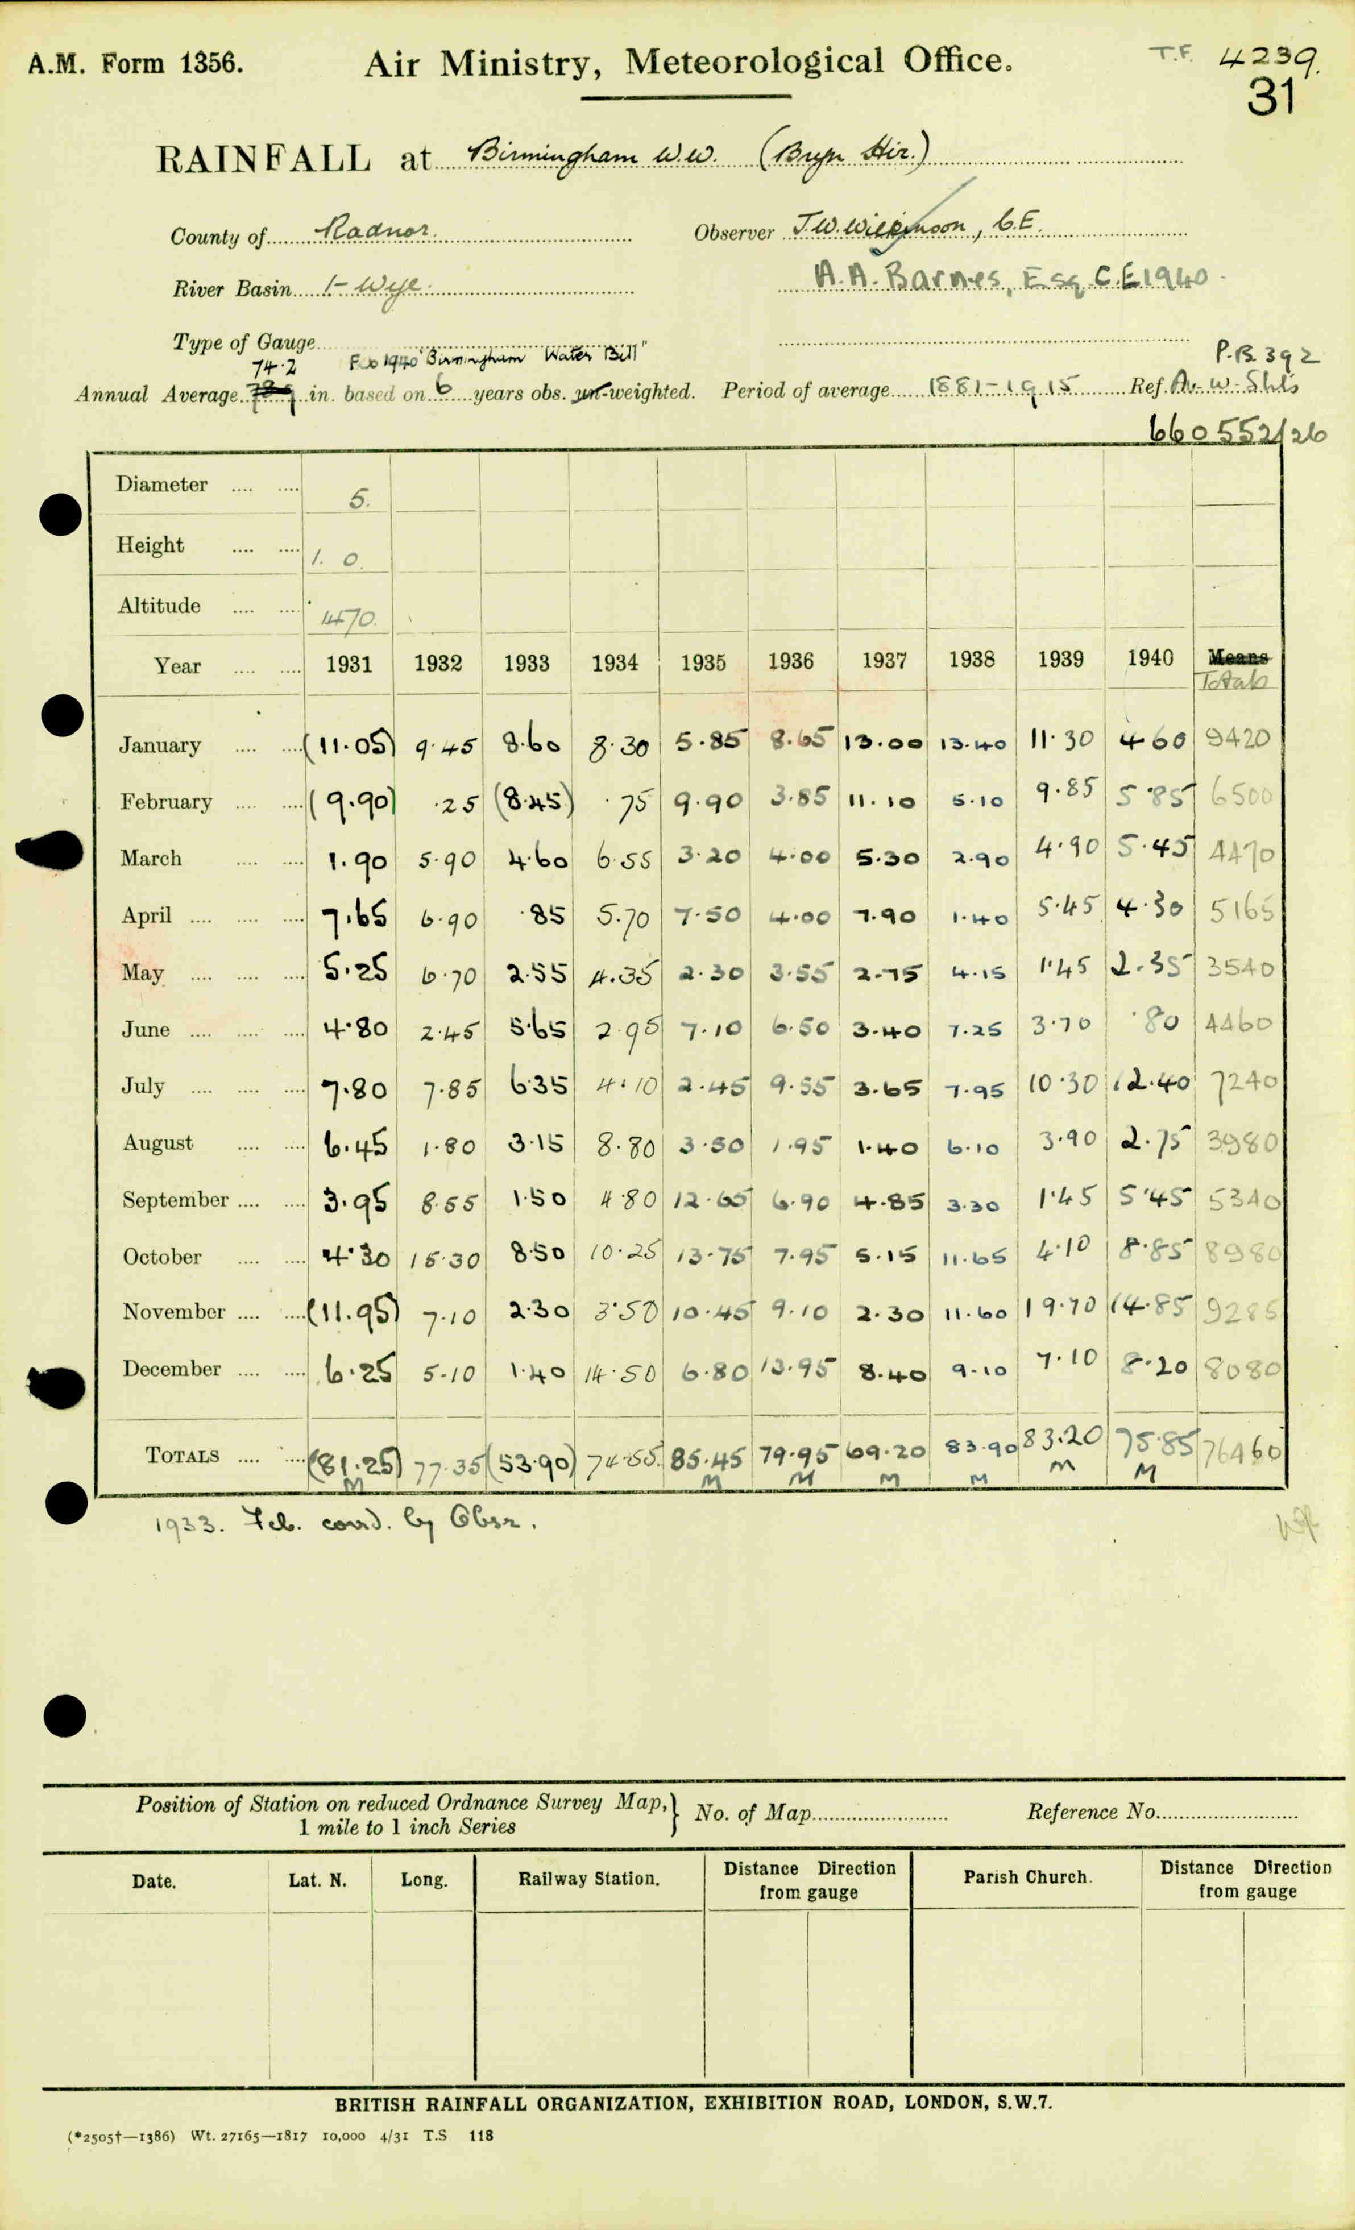 A.M. Form 1356. Air Ministry, Meteorological Office. T.F. 4239.
31
RAINFALL at Birmingham W.W. (Bryn Hir.)
County of Radnor. Observer J.W. Wilkinson, C.E.
River Basin 1- Wye. A.A. Barnes, Esq. C.E 1940.
Type of Gauge
74.2 Feb 1940 "Birmingham Water Bill" P.B. 392
Annual Average in. based on 6 years obs. un-weighted. Period of average 1881-1915 Ref.
660552/26
Diameter .... .... 5.
Height .... .... 1. 0.
Altitude .... .... 470.
Year .... .... 1931 1932 1933 1934 1935 1936 1937 1938 1939 1940 Means
Totals
January .... .... (11.05) 9.45 8.60 8.30 5.85 8.65 13.00 13.40 11.30 4 60 9420
February .... .... (9.90) .25 (8.45) .75 9.90 3.85 11.10 5.10 9.85 5.85 6500
March .... .... 1.90 5.90 4.60 6.55 3.20 4.00 5.30 2.90 4.90 5.45 4470
April .... .... .... 7.65 6.90 .85 5.70 7.50 4.00 7.90 1.40 5.45 4.30 5165
May .... .... .... 5.25 6.70 2.55 4.35 2.30 3.55 2.75 4.15 1.45 2.35 3540
June .... .... .... 4.80 2.45 5.65 2.95 7.10 6.50 3.40 7.25 3.70 .80 4460
July .... .... .... 7.80 7.85 6.35 4.10 2.45 9.55 3.65 7.95 10.30 12.40 7240
August .... .... 6.45 1.80 3.15 8.80 3.50 1.95 1.40 6.10 3.90 2.75 3980
September .... .... 3.95 8.55 1.50 4.80 12.65 6.90 4.85 3.30 1.45 5.45 5340
October .... .... 4.30 15.30 8.50 10.25 13.75 7.95 5.15 11.65 4.10 8.85 8980
November .... .... (11.95) 7.10 2.30 3.50 10.45 9.10 2.30 11.60 19.70 14.85 9285
December .... .... 6.25 5.10 1.40 14.50 6.80 13.95 8.40 9.10 7.10 8.20 8080
TOTALS .... .... (81.25) 77.35 (53.90) 74.55 85.45 79.95 69.20 83.90 83.20 75.85 76460
M M M M M M M
1933. Feb. corrd. by Obsr.
Position of Station on reduced Ordnance Survey Map,} No. of Map Reference No.
1 mile to 1 inch Series
Date. Lat. N. Long. Railway Station. Distance Direction from gauge Parish Church. Distance Direction from gauge
BRITISH RAINFALL ORGANIZATION, EXHIBITION ROAD, LONDON, S.W.7.
(*2505†—1386) Wt. 27165—1817 10,000 4/31 T.S 118